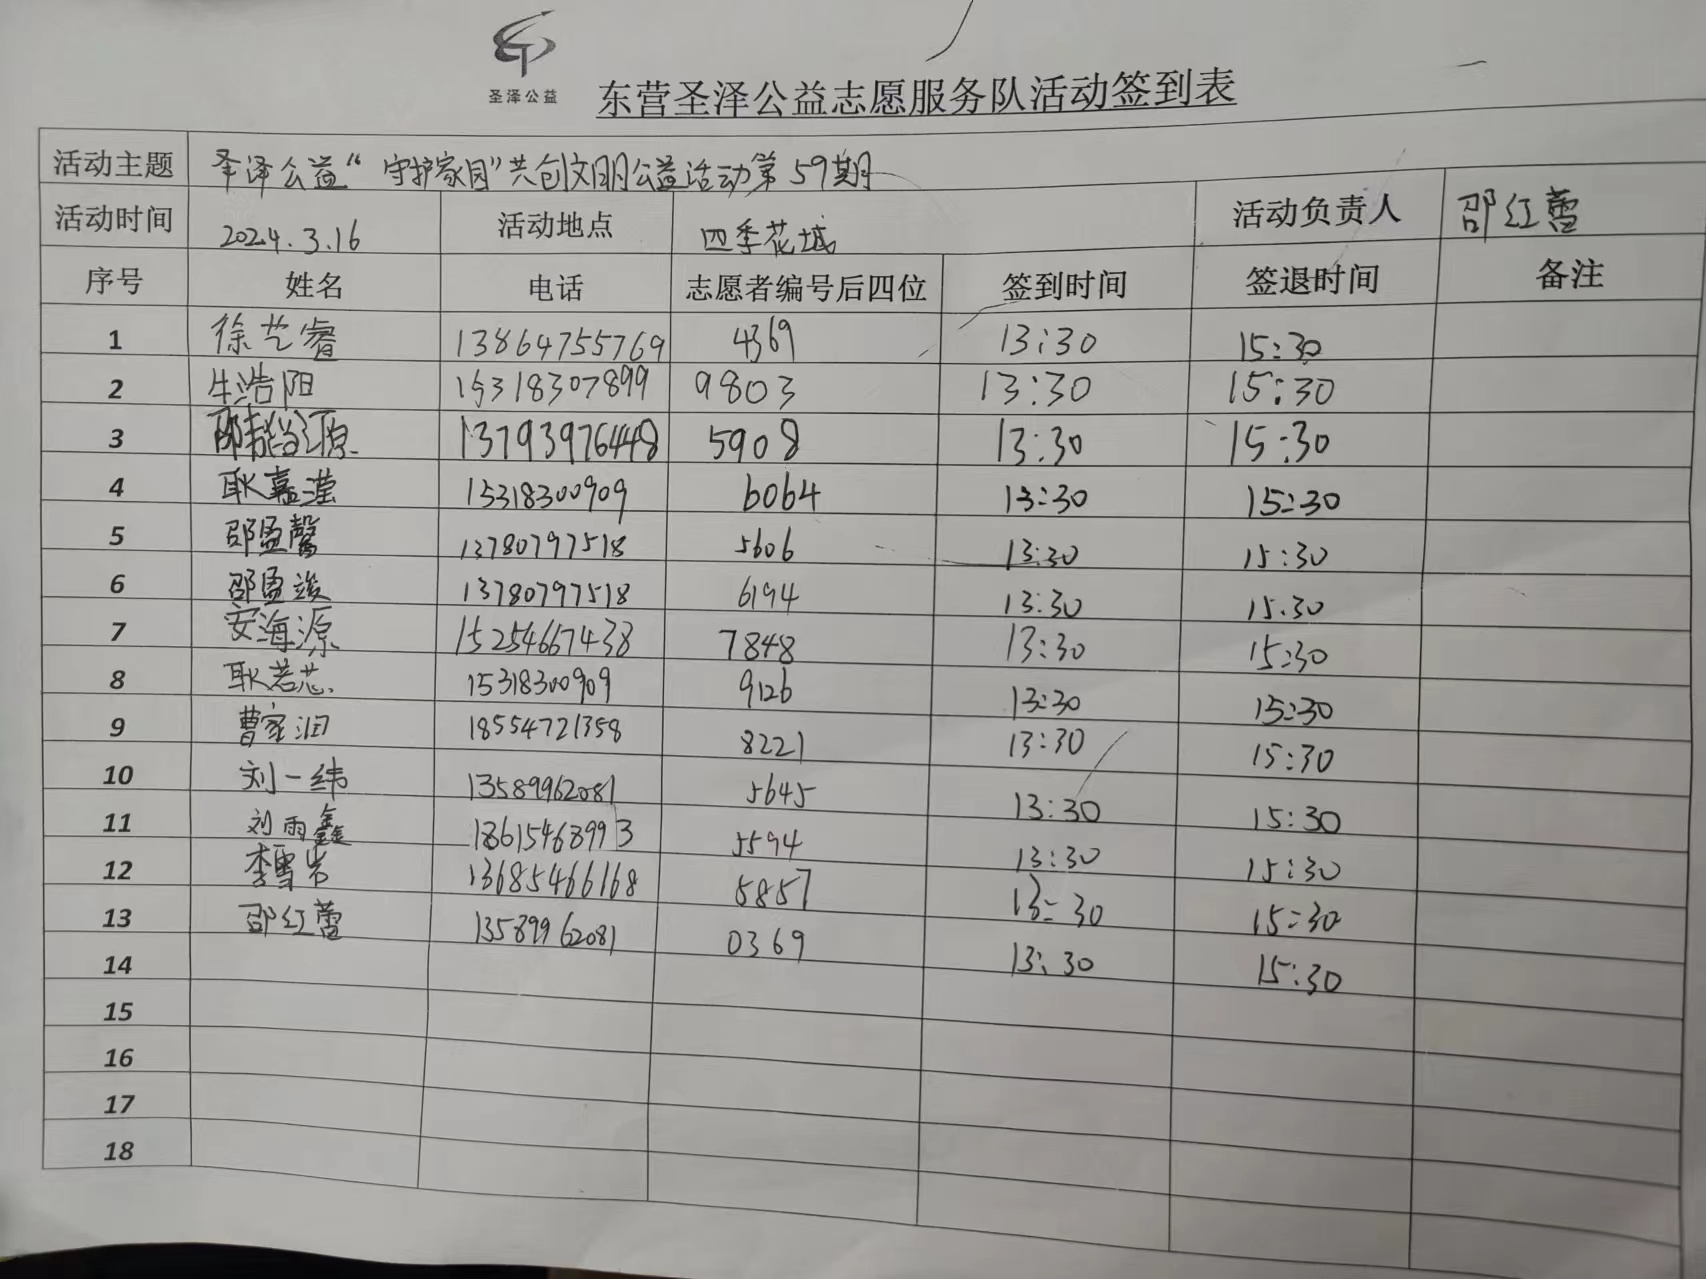 圣泽公益
东营圣泽公益志愿服务队活动签到表
活动主题 圣泽公益“守护家园”共创文明公益活动第59期
活动时间 2024.3.16 活动地点 四季花城 活动负责人 邵红蕾
序号 姓名 电话 志愿者编号后四位 签到时间 签退时间 备注
1 徐艺睿 13864755769 4369 13:30 15:30
2 牛浩阳 15318307899 9803 13:30 15:30
3 13793976448 5908 13:30 15:30
4 耿嘉滢 15318300909 6064 13:30 15:30
5 邵盈馨 13780797518 5606 13:30 15:30
6 邵盈竣 13780797518 6194 13:30 15:30
7 安海源 15254667438 7848 13:30 15:30
8 耿若芯 15318300909 9126 13:30 15:30
9 曹家润 18554721358 8221 13:30 15:30
10 刘一纬 13589962081 5645 13:30 15:30
11 刘雨鑫 18615468993 5594 13:30 15:30
12 李雪岩 13685466168 5857 13:30 15:30
13 邵红蕾 13589962081 0369 13:30 15:30
14
15
16
17
18